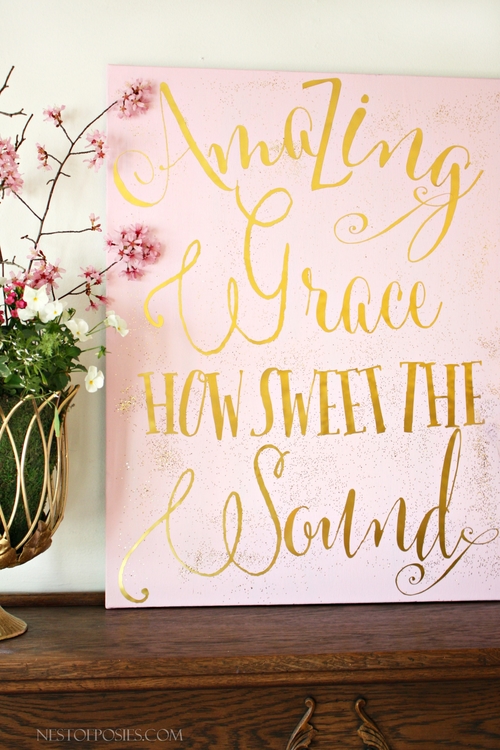 AmaZing
Grace
HOW SWEET THE
Sound
NESTOFPOSIES.COM